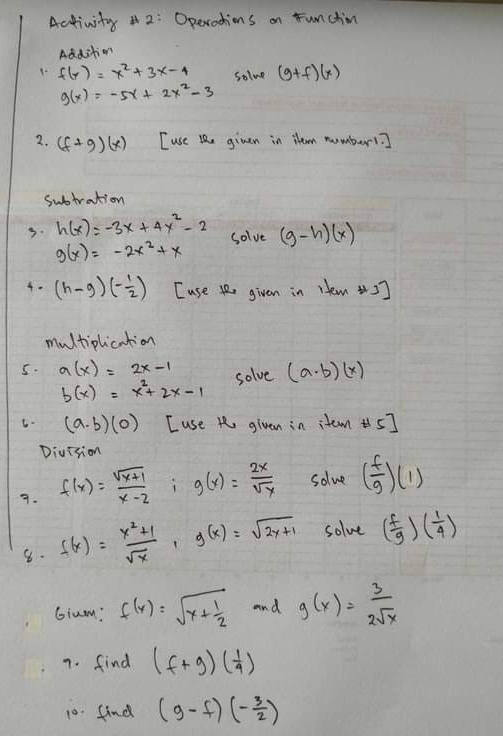 Activity #2: Operations on Function
Addition
1. f(x) = x² + 3x - 4
solve (g+f)(x)
g(x) = -5x + 2x² - 3
2. (f+g)(x) [use the given in item number 1.]
Subtration
3. h(x) = -3x + 4x² - 2
solve (g-h)(x)
g(x) = -2x² + x
4. (h-g)(-1/2) [use the given in item #3]
Multiplication
5. a(x) = 2x - 1
solve (a·b)(x)
b(x) = x² + 2x - 1
6. (a·b)(0) [use the given in item #5]
Division
7. f(x) = √(x+1)/(x-2) ; g(x) = 2x/√x solve (f/g)(1)
8. f(x) = (x²+1)/√x , g(x) = √(2x+1) solve (f/g)(1/4)
Given: f(x) = √(x+1/2) and g(x) = 3/(2√x)
9. find (f+g)(1/4)
10. find (g-f)(-3/2)